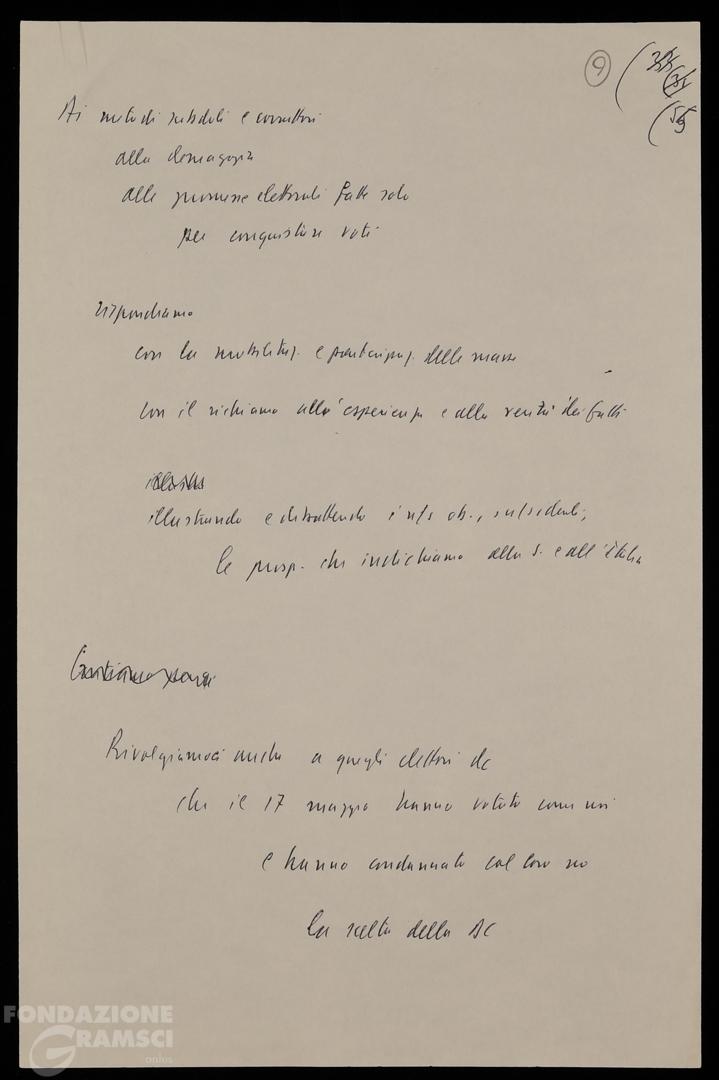 9
Ai metodi subdoli e corruttori
alla demagogia
alle promesse elettorali fatte solo
per conquistare voti
rispondiamo
con la mobilitaz. e partecipaz. delle masse
con il richiamo all'esperienza e alla verità dei fatti
illustrando e dibattendo i ns ob.,
le prosp. che indichiamo alla S. e all'Italia
Rivolgiamoci anche a quegli elettori dc
che il 17 maggio hanno votato come noi
e hanno condannato col loro no
la scelta della DC
FONDAZIONE
GRAMSCI
onlus